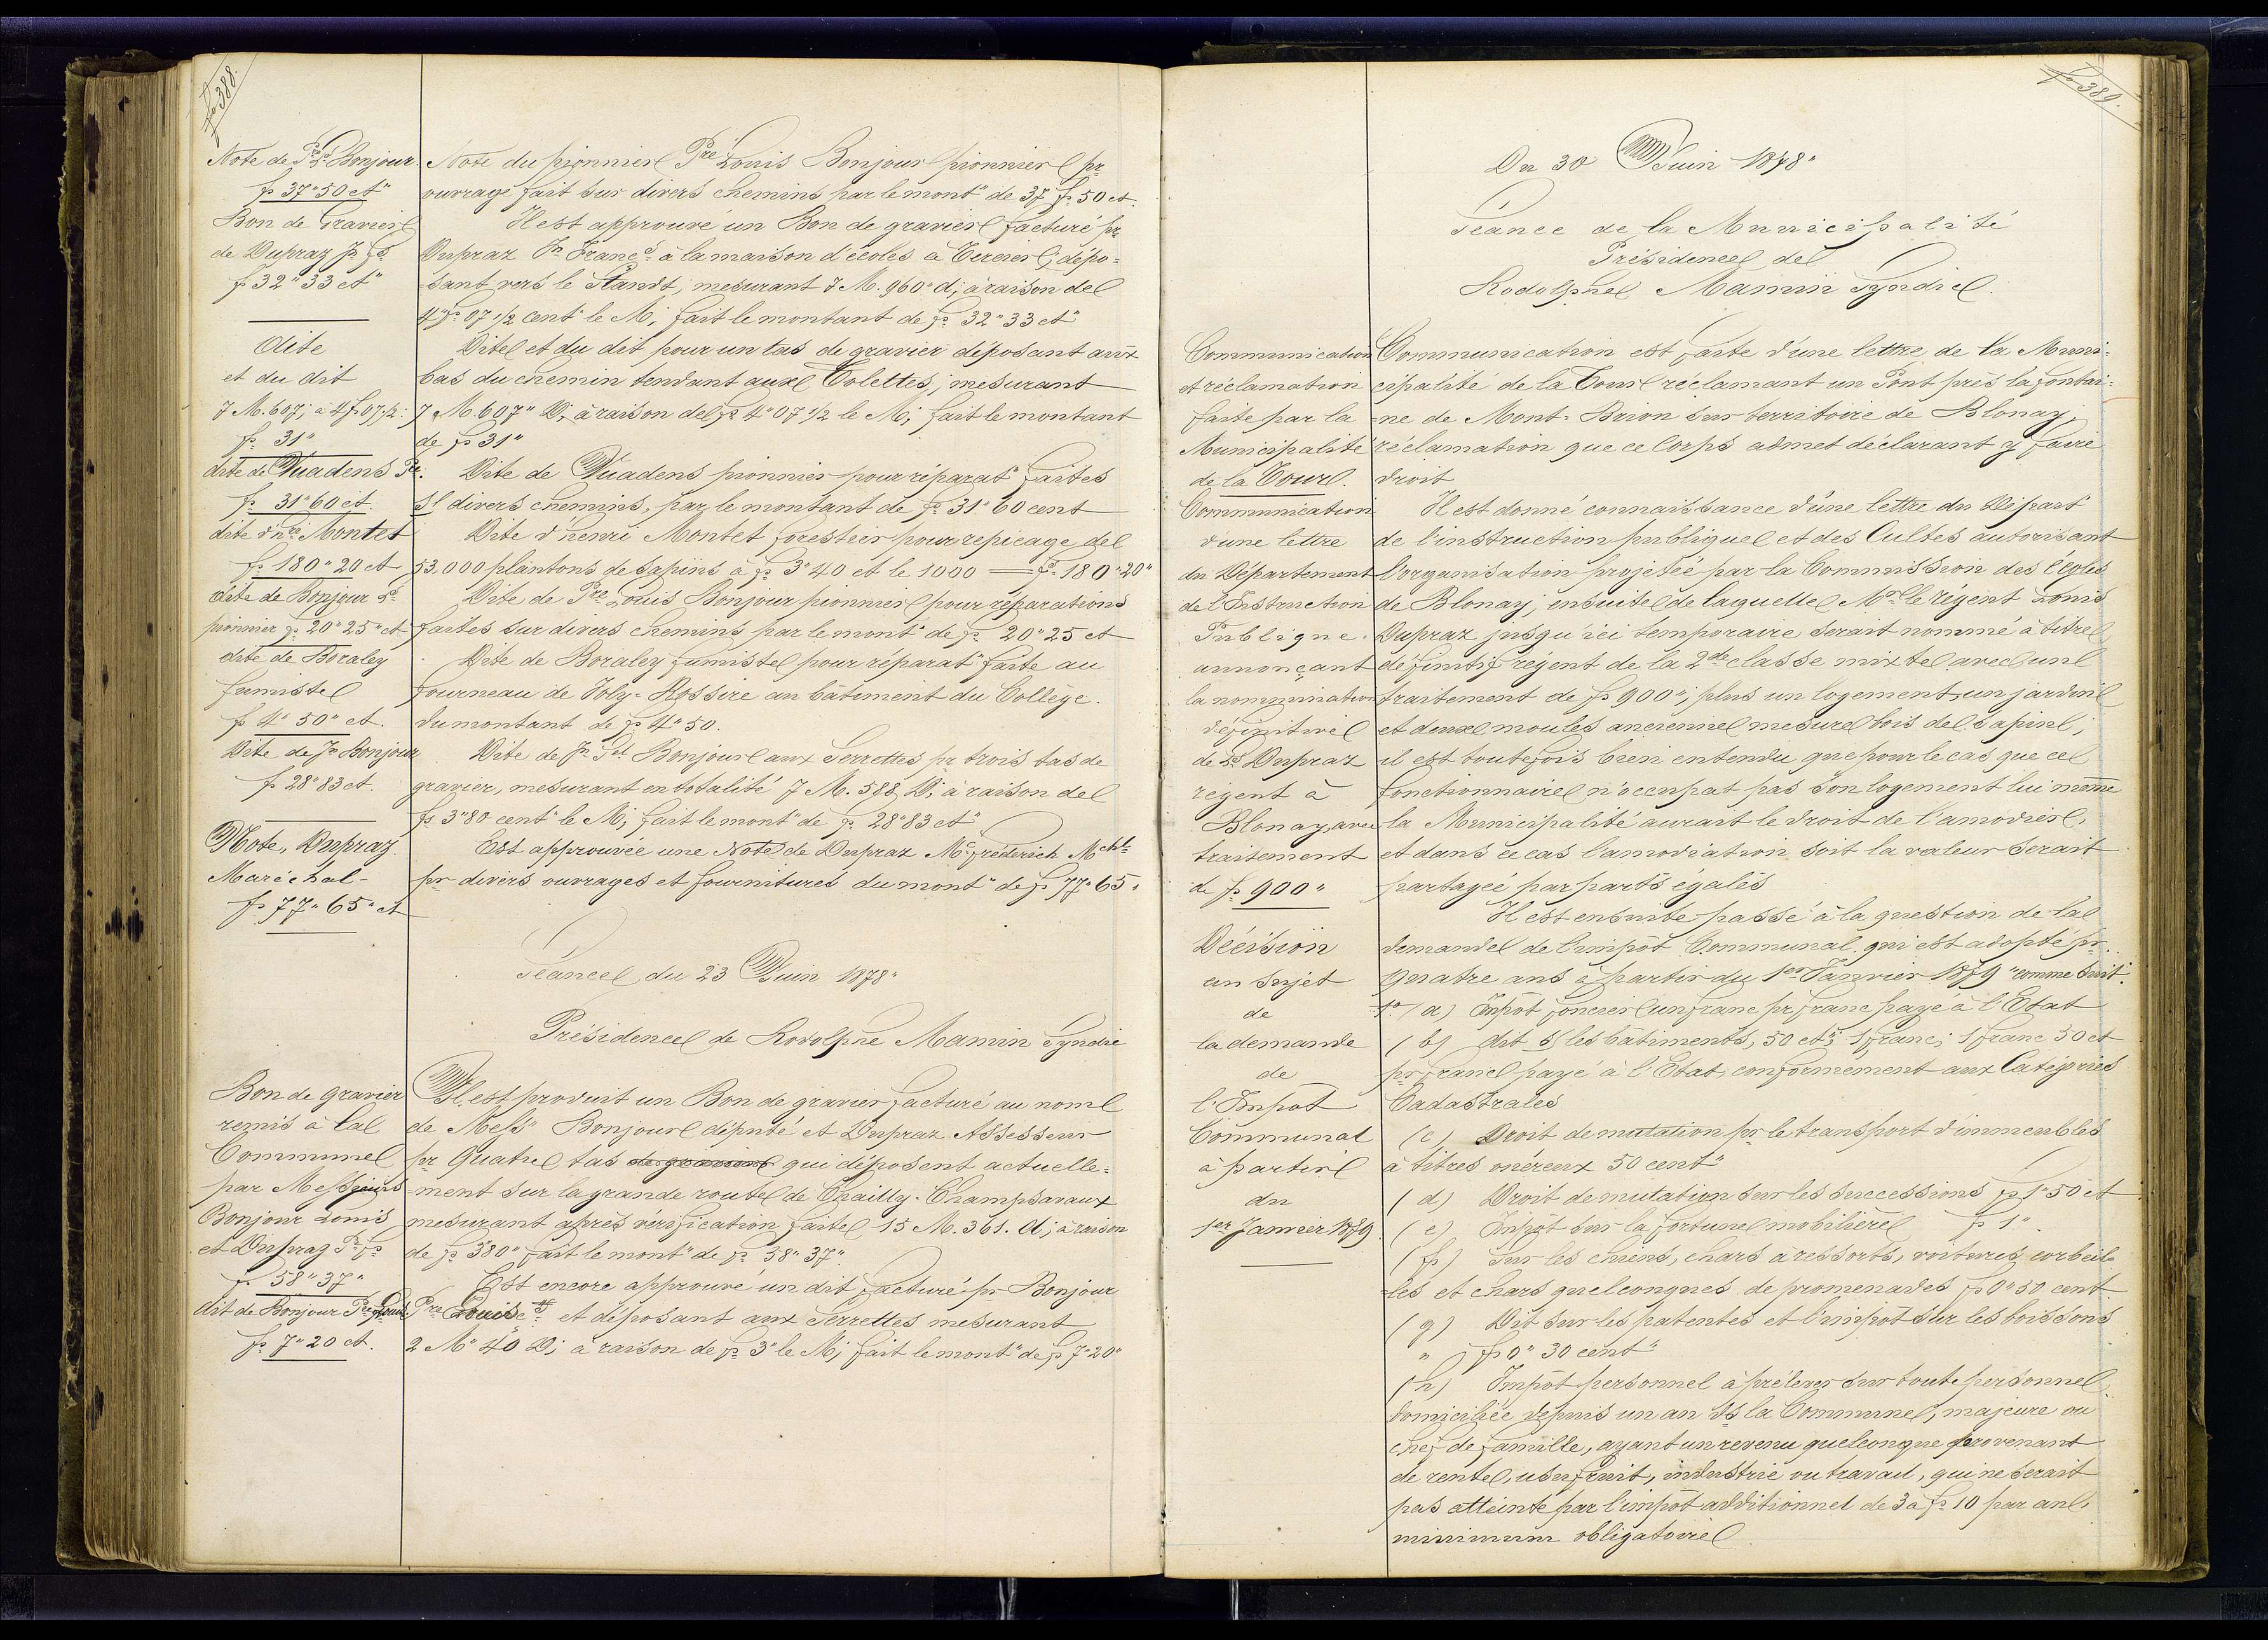 fo 388.
Note de Pre Ls Bonjour.
fs 37"50 ct"
Bon de Gravier
de Dupraz Jn Fs
f 32"33 ct"
dite
et du dit
7 M. 607; à 4 f 07 1/2:
fs 31"
dite de Vuadens Pr.
fs 31"60 ct.
dite d'Hri Montet
fs 180"20 ct
dite de Bonjour Ls
pionnier fs 20"25" ct
dite de Boraley
fumiste
fs 4"50" ct.
Dite de Jn Bonjour
fs 28"83 ct.
Note, Dupraz
Maréchal-
fs 77"65" ct
Note du pionnier Pre Louis Bonjour pionnier pr
ouvrage fait sur divers chemins par le mont" de 37 fs 50 ct.
Il est approuvé un Bon de gravier facturé pr
Dupraz Jn Francs à la maison d'écoles à Cercier; dépo=
=sant vers le Standt; mesurant 7 M. 960" d; à raison de
4 fs 07 1/2 cent" le M; fait le montant de fs 32"33 ct"
Dite et du dit pour un tas de gravier déposant aux
bas du chemin tendant aux Tolettes; mesurant
7 M. 607" D; à raison de fs 4"07 1/2 le M; fait le montant
de fs 31"
Dite de Vuadens pionnier pour réparat" faites
s/ divers chemins, par le montant de fs 31"60 cent
Dite d'henri Montet forestier pour repicage de
53.000 plantons de sapins à fs 3"40 ct le 1000 = fs 180"20"
Dite de Pre Louis Bonjour pionnier pour réparations
faites sur divers chemins par le mont" de fs 20"25 ct
Dite de Boraley fumiste pour réparat" faite au
fourneau de Joly-Rossire au bâtiment du Collège.
du montant de fs 4"50.
Dite de Jn Sel Bonjour aux Serrettes pr trois tas de
gravier, mesurant en totalité 7 M. 588 D; à raison de
fs 3"80 cent" le M; fait le mont" de fs 28"83 ct"
Est approuvée une Note de Dupraz Mc fréderich Mchl
pr divers ouvrages et fournitures du mont" de fs 77"65"
Séance du 23 Juin 1878"
Présidence de Rodolphe Mamin Syndic
Bon de gravier
remis à la
Commune
par Messieurs
Bonjour Louis
et Dupraz Jn Fs
fs 58"37"
dit de Bonjour Pre Louis.
fs 7"20 ct.
Il est produit un Bon de gravier facturé au nom
de Mess" Bonjour député et Dupraz Assesseur
pr Quatre tas de gravier qui déposent actuelle=
=ment sur la grande route de Chailly-Champsavaux
mesurant après vérification faite 15 M. 361. d; à raison
de fs 380" fait le mont" de fs 58"37".
Est encore approuvé un dit facturé pr Bonjour
Pre Louis et déposant aux Serrettes mesurant
2 M" 40 D; à raison de fs 3" le M; fait le mont" de fs 7"20"
fo 389.
Du 30 Juin 1878"
Séance de la Municipalité
Présidence de
Rodolphe Mamin Syndic.
Communication
et réclamation
faite par la
Municipalité
de la Tour.
Communication
d'une lettre
du Département
de l'Instruction
Publique.
annonçant
la nommination
définitive
de Ls Dupraz
regent à
Blonay, avec
traitement
de fs 900"
Décision
au sujet
de
la demande
de
l'Impot
Communal
à partir
du
1er Janvier 1879.
Communication est faite d'une lettre de la Muni=
cipalité de la Tour réclamant un Pont près la fontai=
=ne de Mont-Brion sur territoire de Blonay;
réclamation que ce Corps admet déclarant y faire
droit
Il est donné connaissance d'une lettre du Départ"
de l'instruction publique et des Cultes autorisant
l'organisation projetée par la Commission des écoles
de Blonay; ensuite de laquelle Mr le régent Louis
Dupraz jusqu'ici temporaire serait nommé à titre
définitif régent de la 2de classe mixte avec un
traitement de fs 900"; plus un logement, un jardin
et deux moules ancienne mesure bois de sapin;
il est toutefois bien entendu que pour le cas que ce
fonctionnaire n'occupat pas son logement lui même
la Municipalité aurait le droit de l'amodier,
et dans ce cas l'amodiation soit la valeur serait
partagée par parts égales
Il est ensuite passé à la question de la
demande de l'impôt Communal qui est adopté pr
quatre ans à partir du 1er Janvier 1879 "comme suit".
1° (a) Impot foncier un franc pr franc payé à l'Etat
(b) dit s/ les bâtiments, 50 ct; 1 franc; 1 franc 50 ct
pr franc payé à l'Etat, conformément aux Catégories
Cadastrales
(c) Droit de mutation pr le transport d'immeubles
à titres onéreux 50 cent"
(d) Droit de mutation sur les successions fs 1"50 ct
(e) Impôt sur la fortune mobilière fs 1".
(f) Sur les chiens, chars à ressorts, voitures corbeil=
=les et chars quelconques de promenades fs 0"50 cent
(g) Dit sur les patentes et l'impôt sur les boissons
" fs 0"30 cent"
(h) Impôt personnel à prélever sur toute personne
domiciliée depuis un an ds la Commune, majeure ou
chef de famille, ayant un revenu quelconque provenant
de rente, usufruit, industrie ou travail, qui ne serait
pas atteinte par l'impôt additionnel de 3 à fs 10 par an,
minimum obligatoire